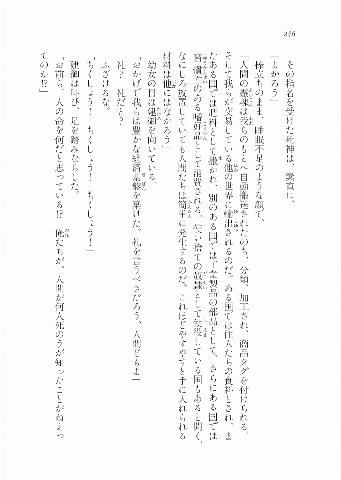 216
その指名を受けた死神は、素直に、
「よかろう」
棒立ちのまま、睡眠不足のような顔で、
「人間の霊魂は我らのもとへ自動搬送されたのち、分類、加工され、商品タグを付けられる。
そして我らが交易している他の世界に輸出されるのだ。ある国では住人たちの食料とされ、ま
たある国では肥料として撒かれ、別のある国では工業製品の部品として、さらにある国では
習慣性のある嗜好品として消費される。使い捨ての奴隷として使役している国もあると聞く。
なにしろ放置していても人間たちは簡単に発生するのだ。これほどやすやすと手に入れられる
材料は他にはなかろう」
幼女の目は建御を向いている。
「おかげで我らは豊かな経済基盤を築けた。礼を言うべきだろう、人間どもよ」
礼？　礼だと？
ふざけるな。
「ちくしょう！　ちくしょう！　ちくしょう！」
建御は叫び、足を踏みならした。
「お前ら、人の命を何だと思っている!?　俺たちが、人間が何人死のうが知ったことかねえっ
てのか!?」